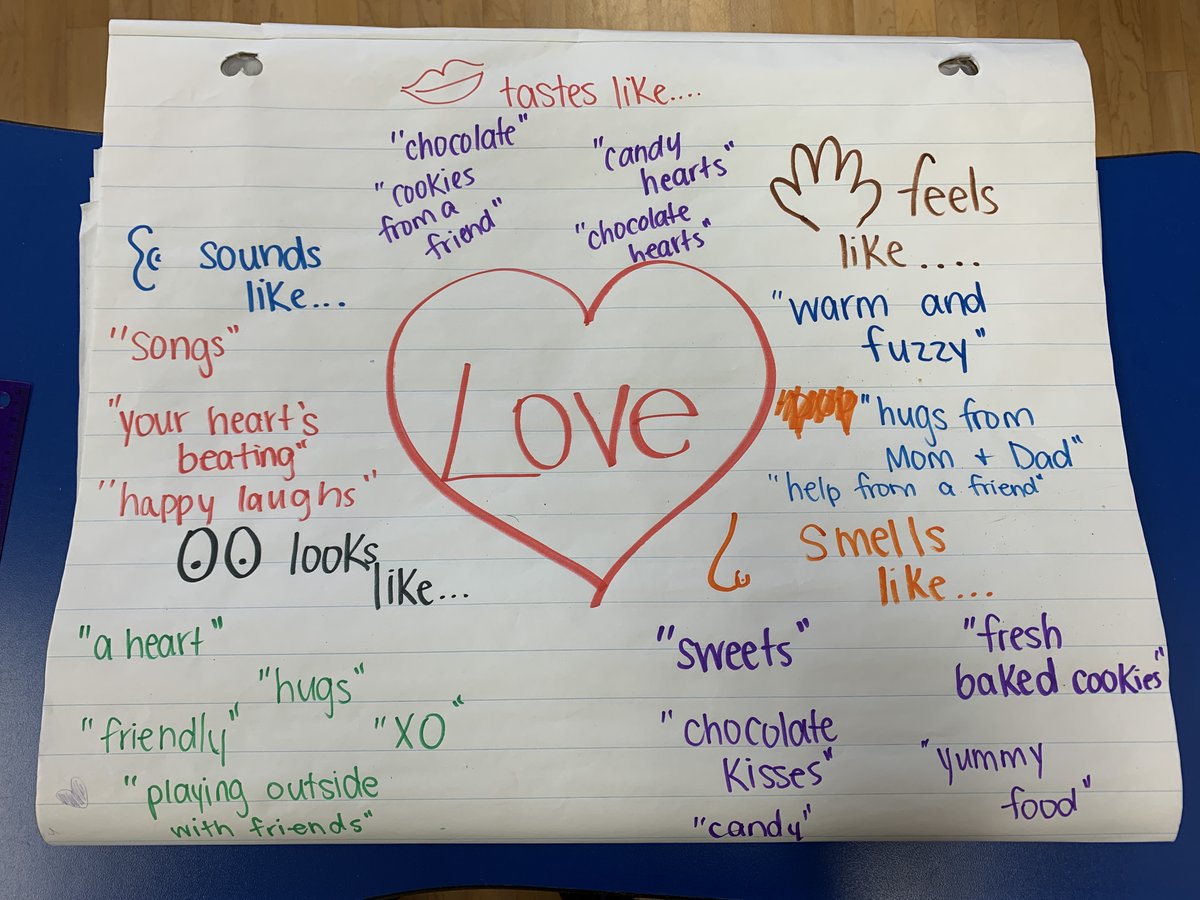 tastes like....
"chocolate"
"cookies
from a
friend"
"candy
hearts"
"chocolate
hearts"
sounds
like...
"songs"
"your heart's
beating"
"happy laughs"
Love
feels
like....
"warm and
fuzzy"
"hugs from
Mom + Dad"
"help from a friend"
looks
like...
"a heart"
"hugs"
"friendly"
"XO"
"playing outside
with friends"
smells
like...
"sweets"
"fresh
baked cookies"
"chocolate
kisses"
"yummy
food"
"candy"